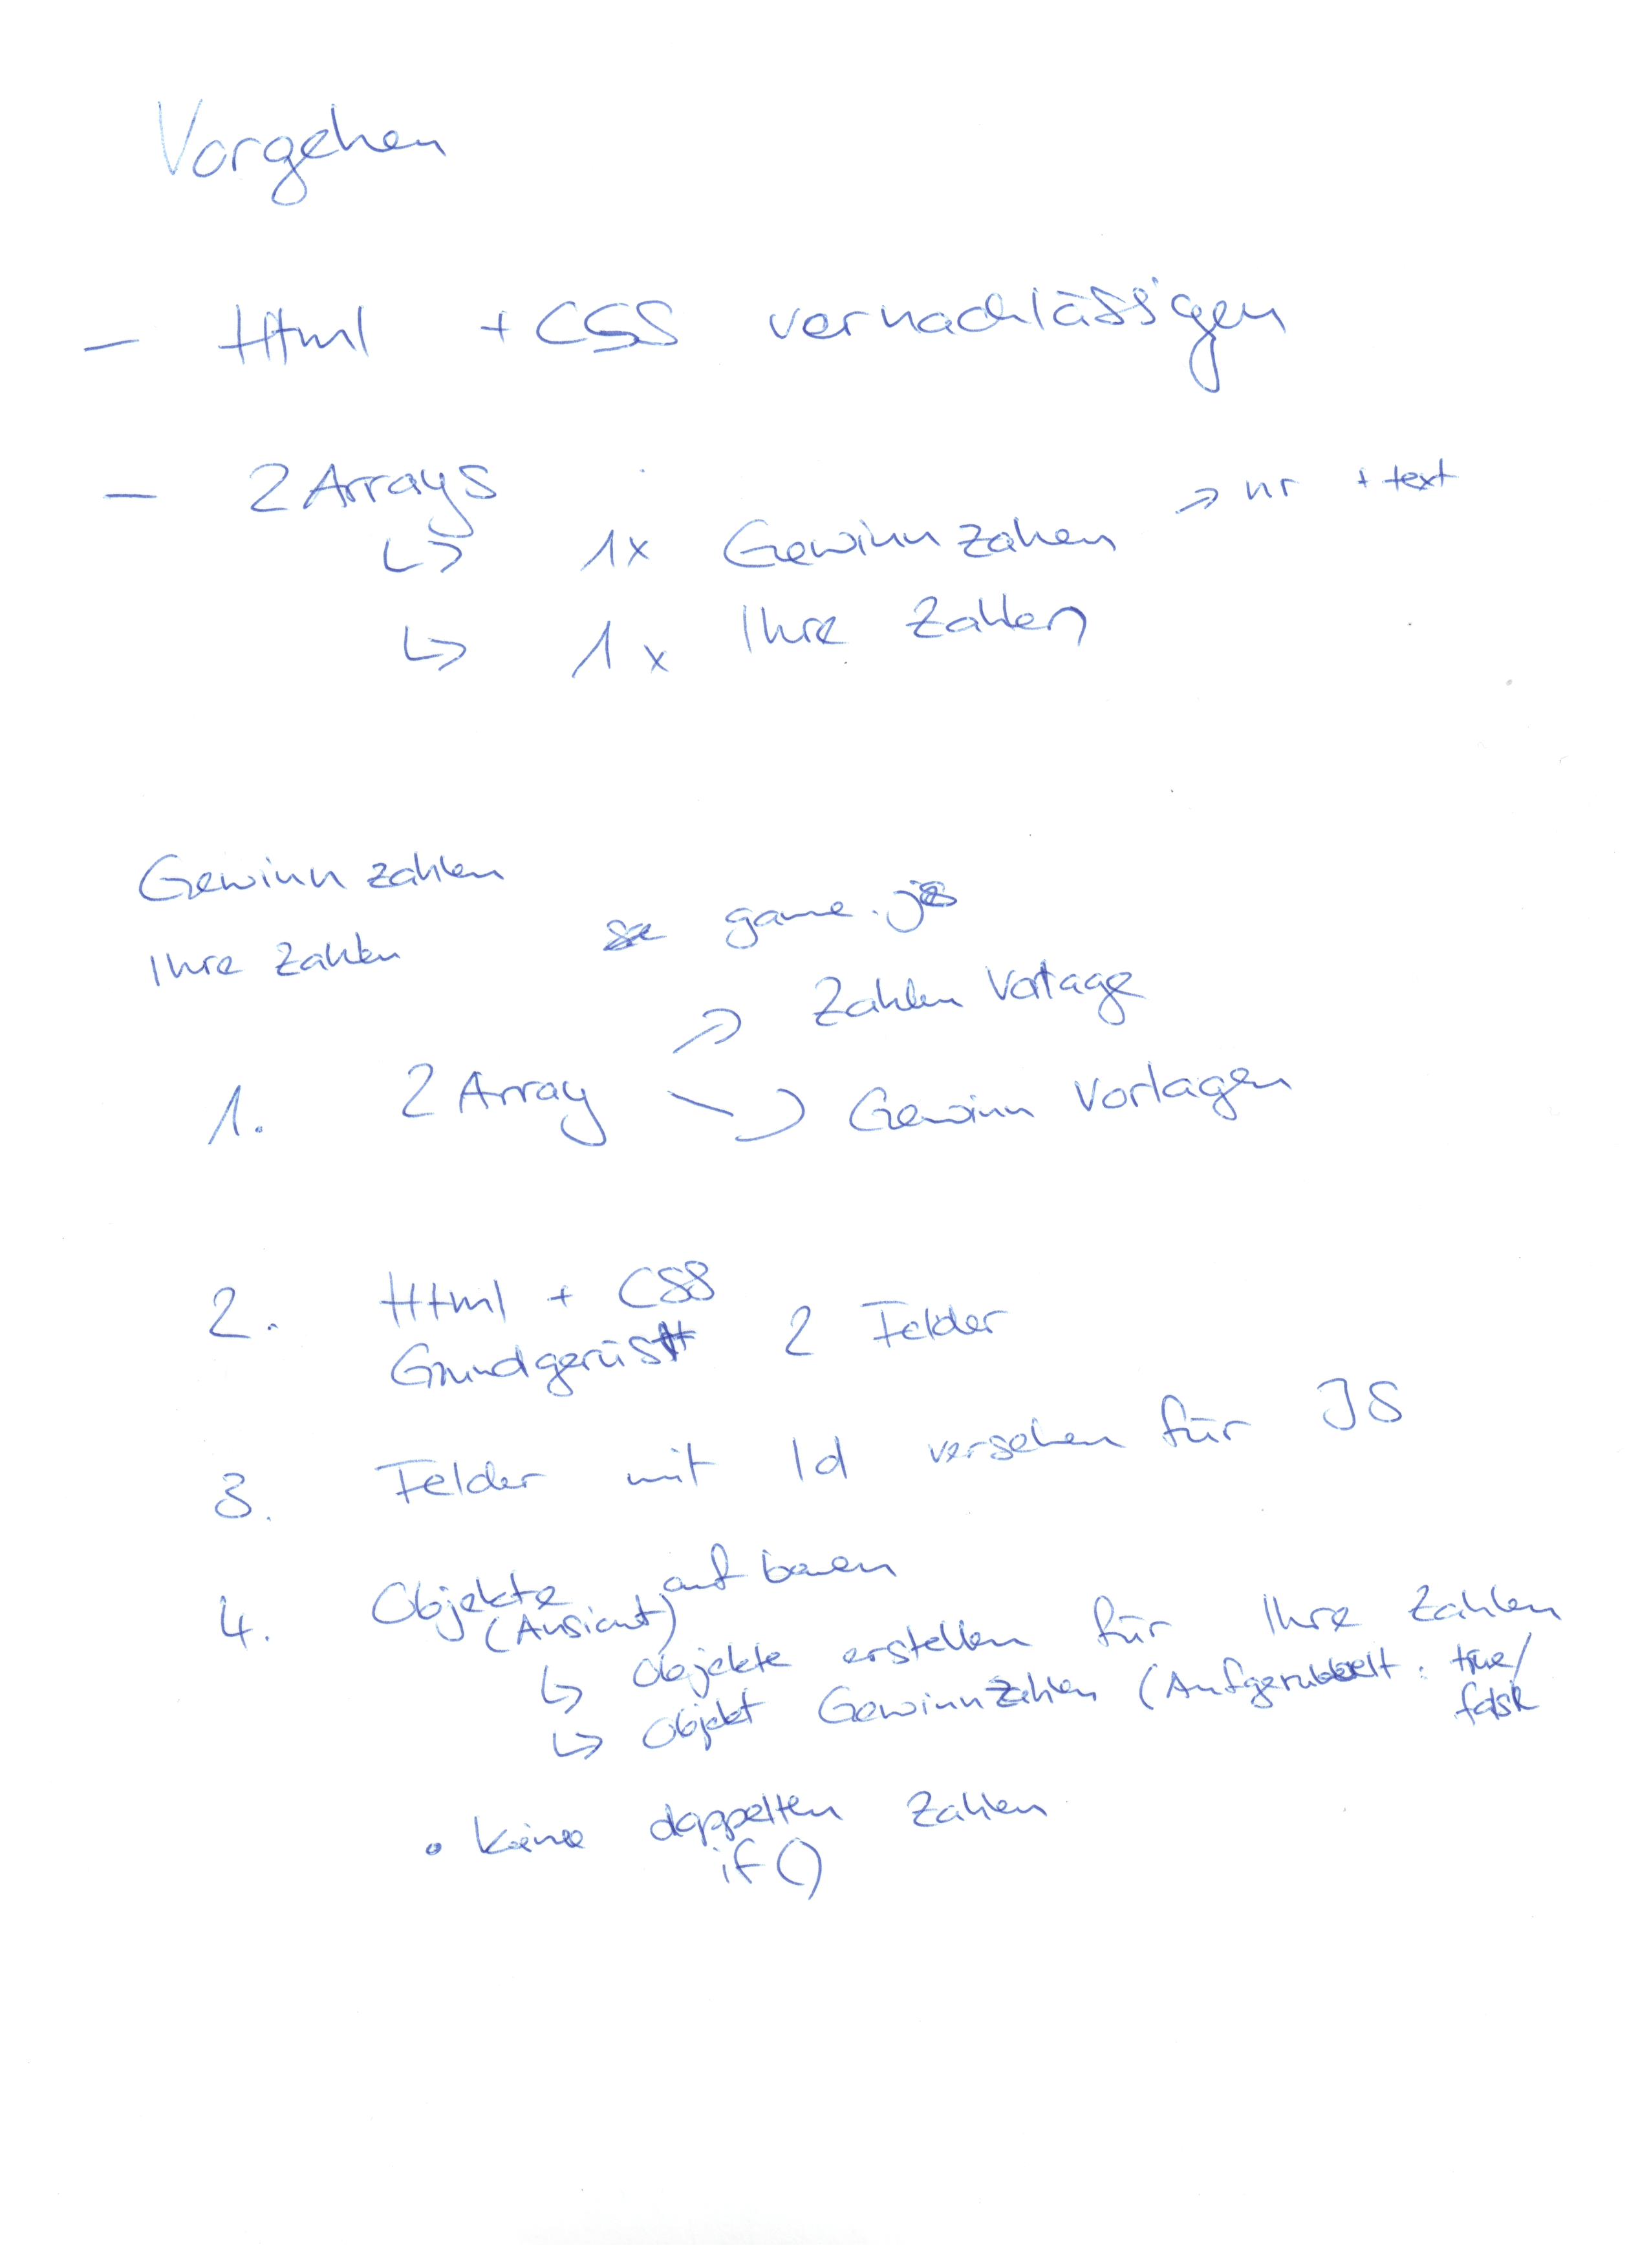 Vorgehen
- Html + CSS vernachlässigen
- 2 Arrays → nr + text
↳ 1x Gewinn zahen
↳ 1x Ihre Zahlen
Gewinn zahlen
Ihre Zahlen game.js
→ Zahlen Vorlage
1. 2 Array → Gewinn Vorlagen
2. Html + CSS
Grundgerüst 2 Felder
3. Felder mit Id versehen für JS
4. Objekte aufbauen
(Ansicht)
↳ Objekte erstellen für Ihre Zahlen
↳ Objekt Gewinnzahlen (Aufgerubbelt: true/
false
• keine doppelten Zahlen
if ()